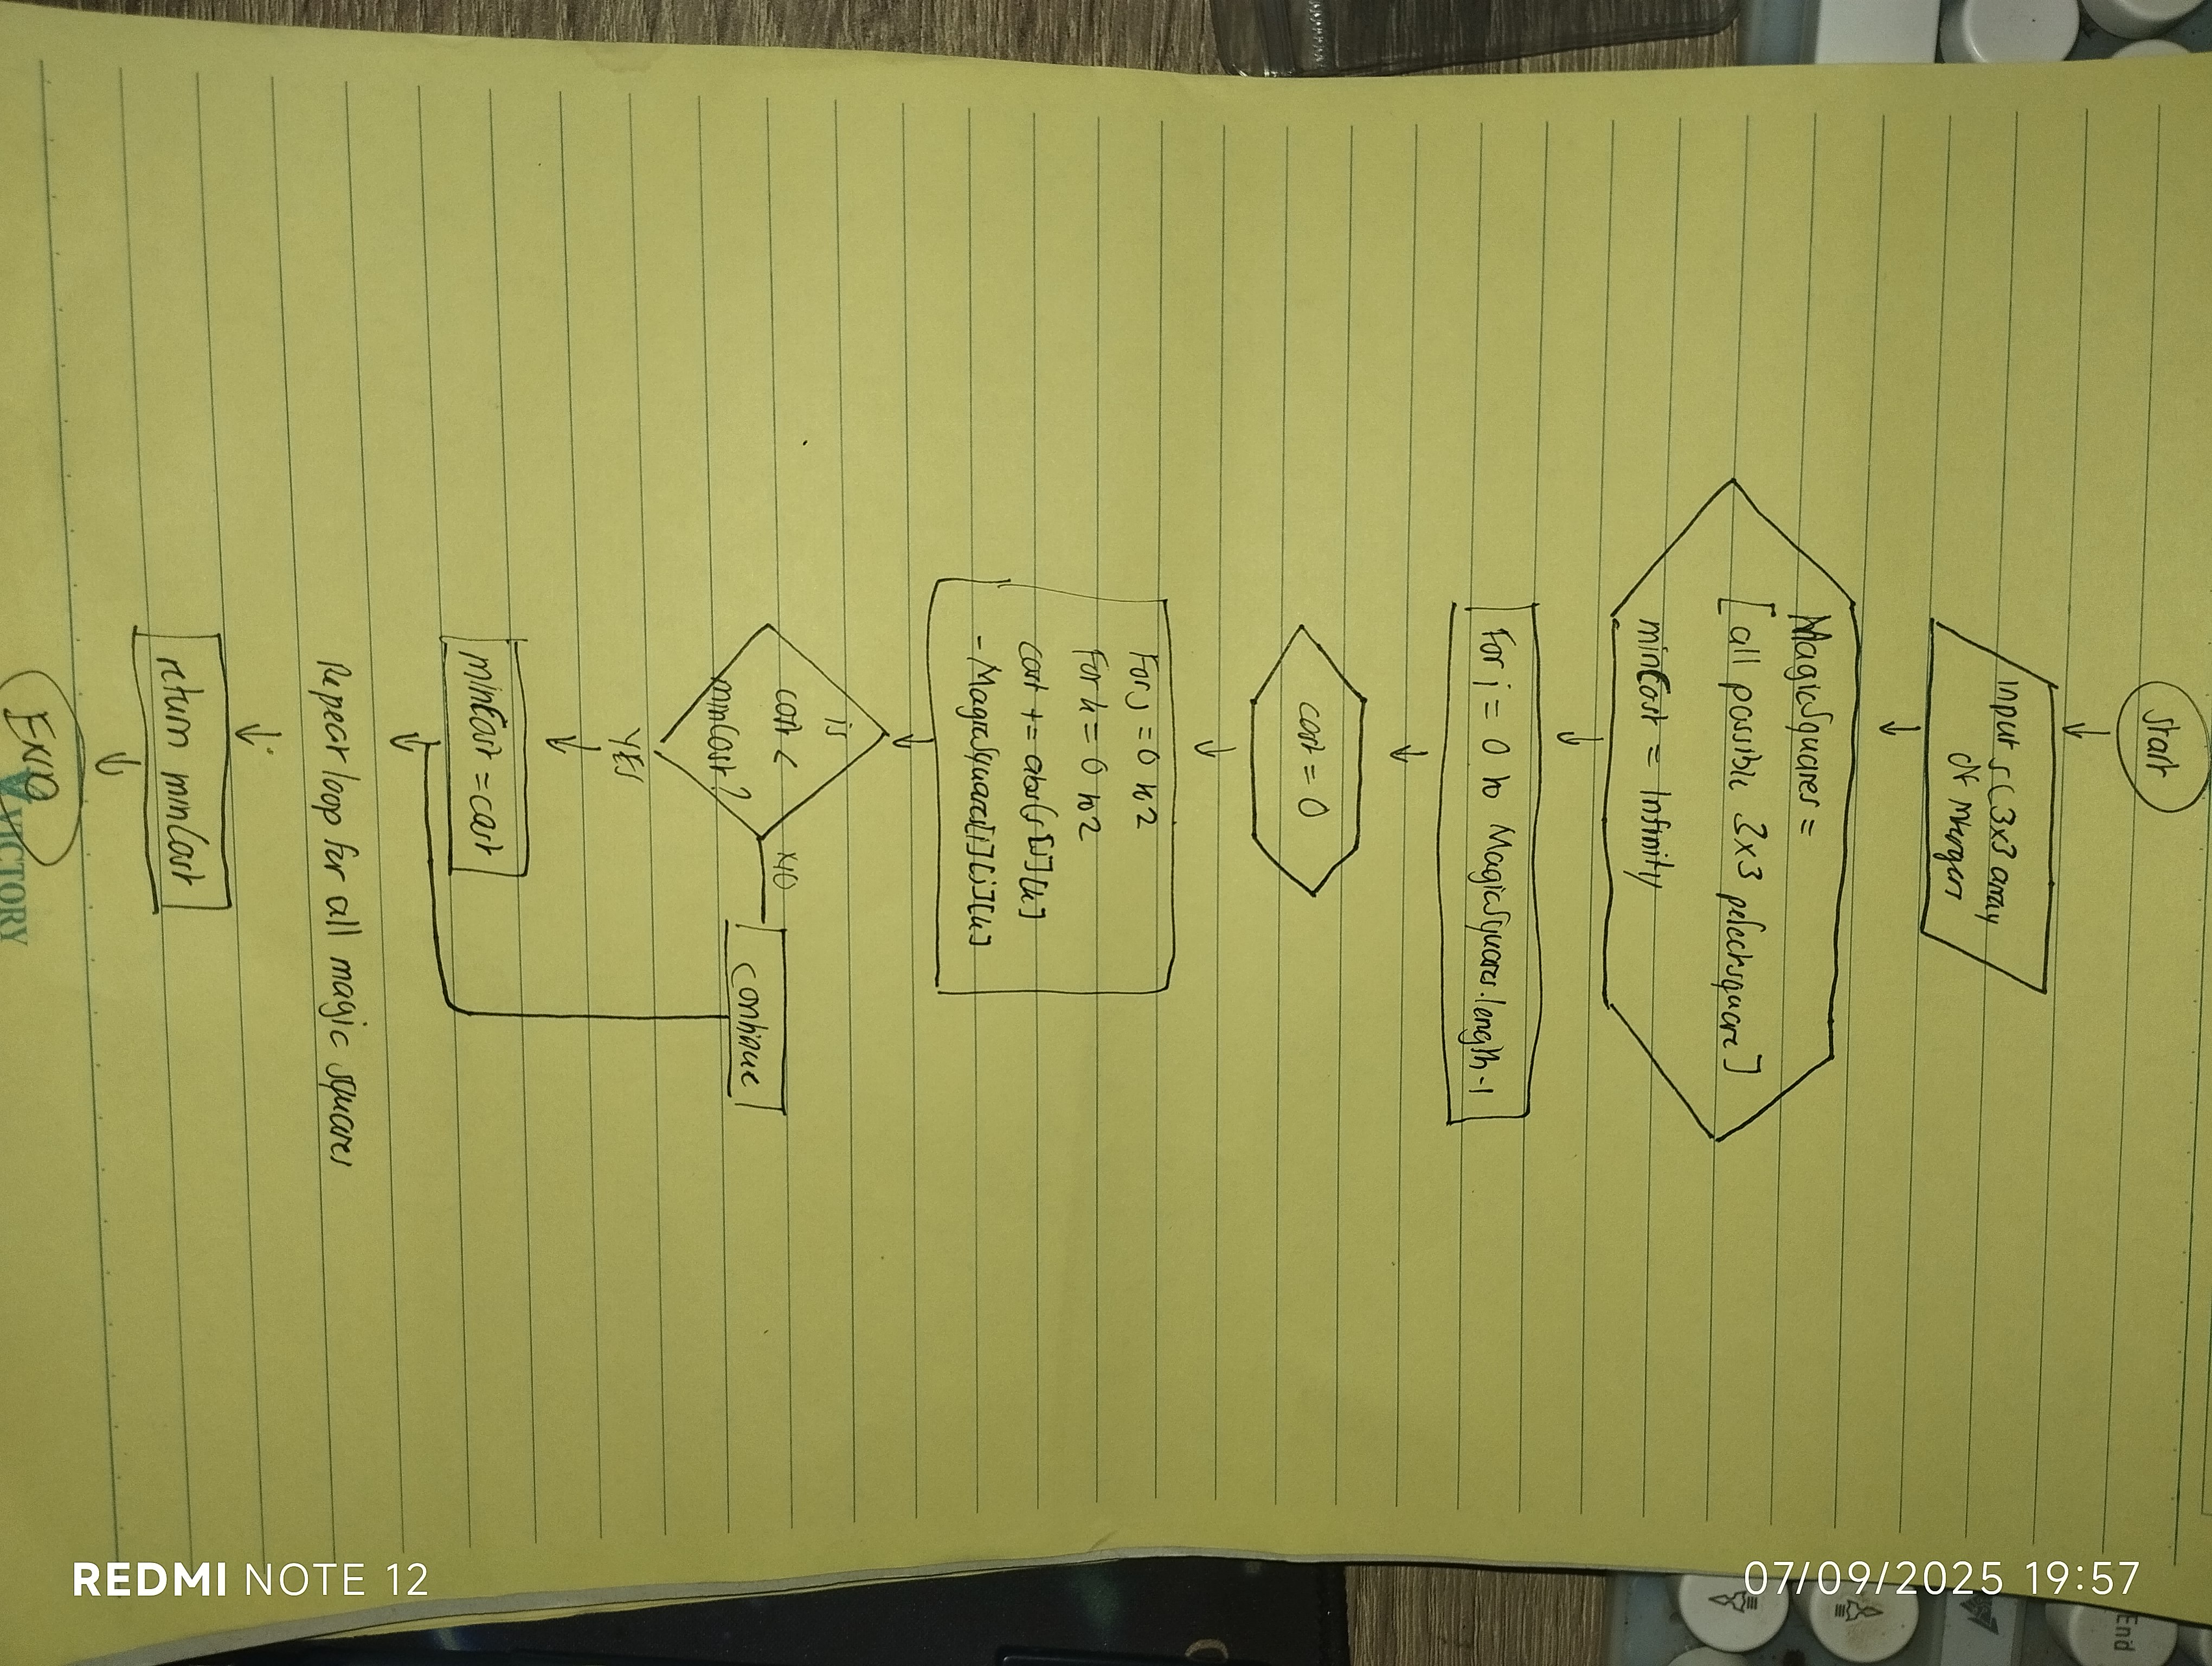 Start
Input s (3x3 array
of integers
MagicSquares =
[all possible 3x3 pefectsquare]
minCost = Infinity
For i = 0 to MagicSquares.length-1
cost = 0
For j = 0 to 2
For k = 0 to 2
cost += abs(s[j][k]
- MagicSquares[i][j][k]
is
cost <
minCost?
NO
continue
YES
minCost = cost
Repeat loop for all magic squares
return minCost
END
VICTORY
REDMI NOTE 12
07/09/2025 19:57
End